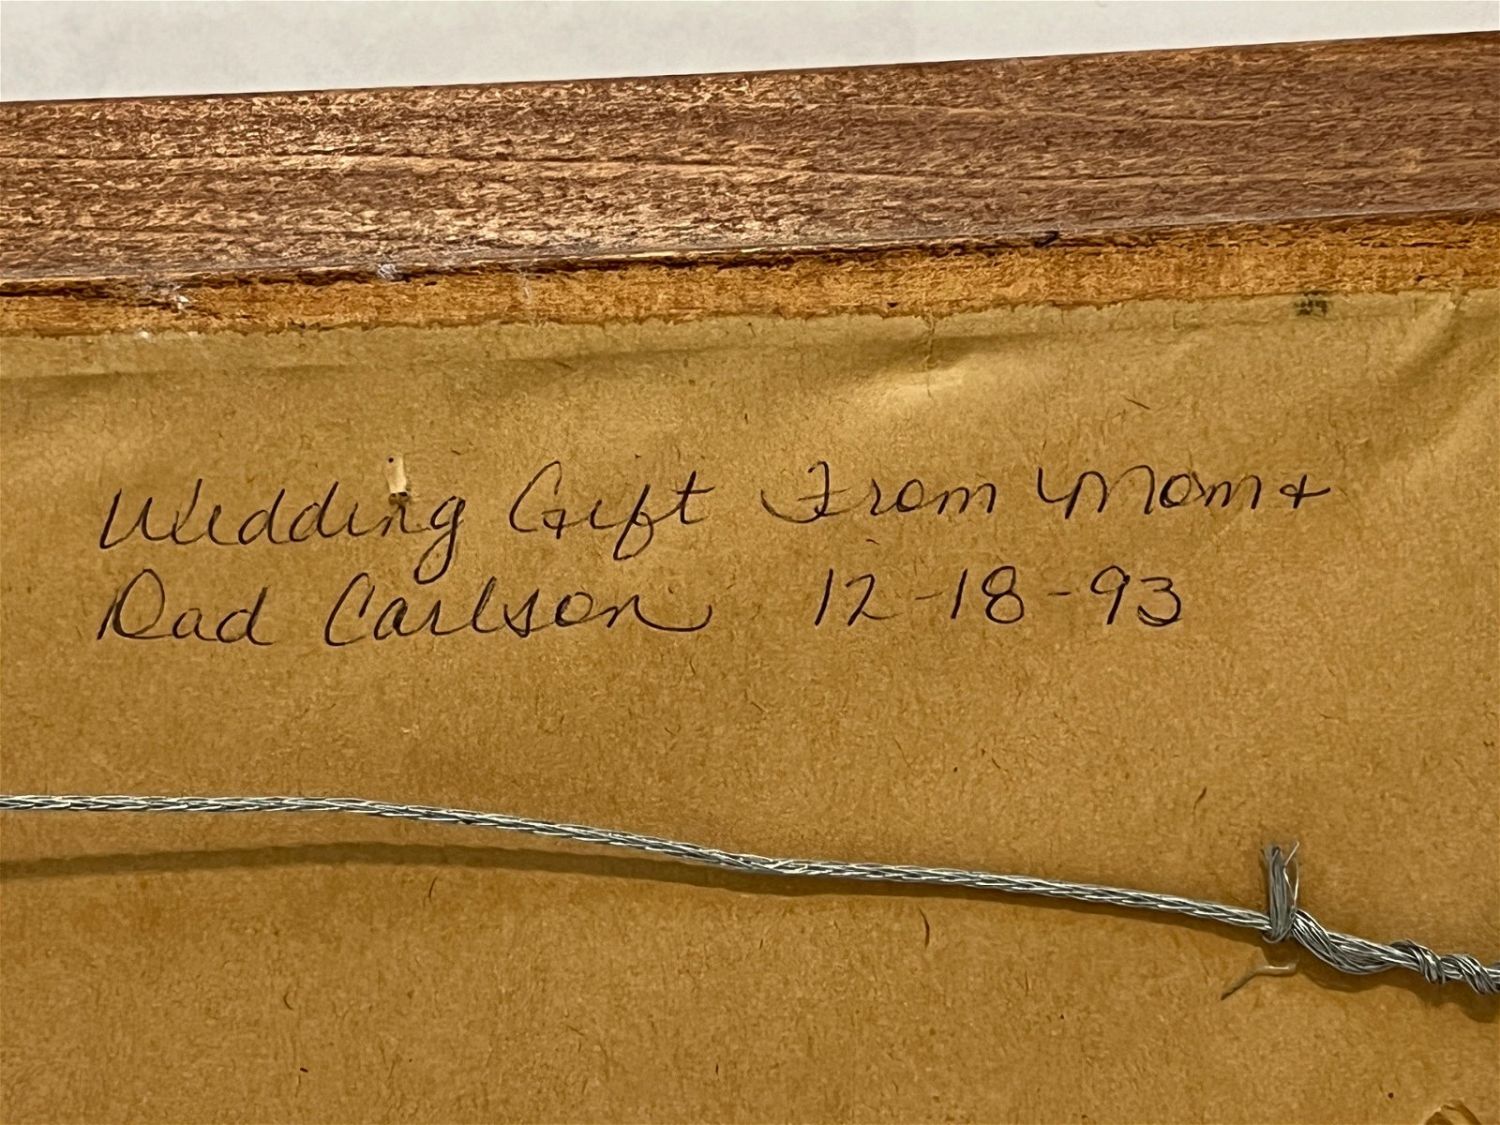 Wedding Gift From Mom +
Dad Carlson 12-18-93